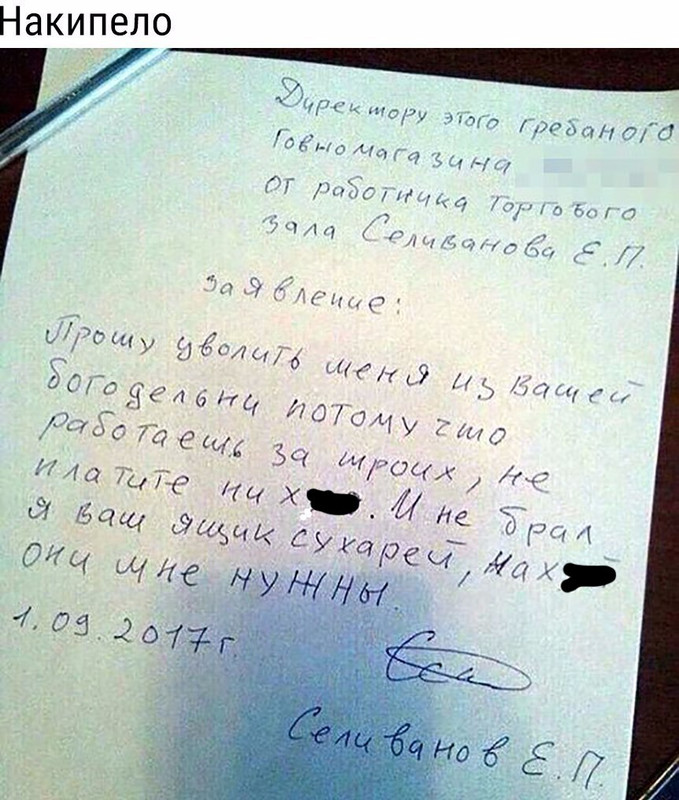 Накипело
Директору этого гребаного
Говномагазина
от работника торгового
зала Селиванова Е.П.
заявление:
Прошу уволить меня из вашей
богодельни потому что
работаешь за троих, не
платите ни х . И не брал
я ваш ящик сухарей, нах й
они мне нужны.
1.09.2017г.
Селиванов Е.П.